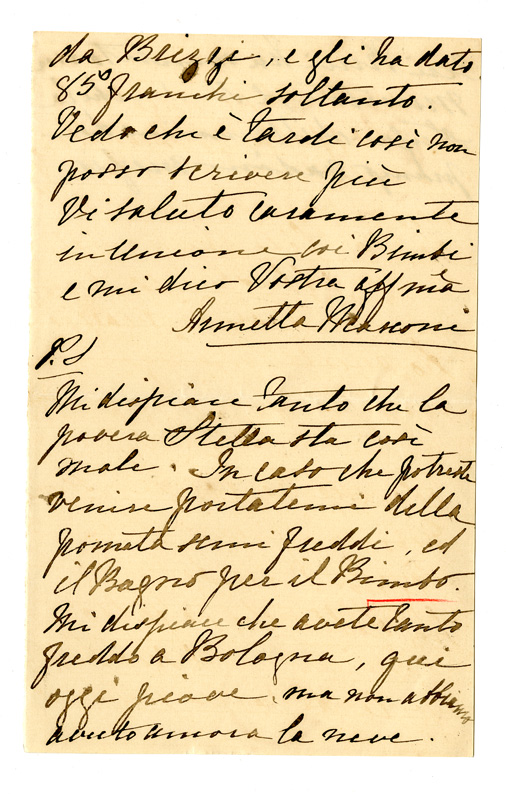 da Brizzi, e gli ha dato
850 franchi soltanto.
Vedo che è tardi così non
posso scrivere più
Vi saluto caramente
in Unione coi Bimbi
e mi dico Vostra affma
Annetta Marconi
P.S
Mi dispiace tanto che la
povera Stella sta così
male. In caso che potreste
venire portatemi della
pomata semi freddi, ed
il Bagno per il Bimbo.
Mi dispiace che avete tanto
freddo a Bologna, qui
oggi piove, ma non abbiamo
avuto ancora la neve.